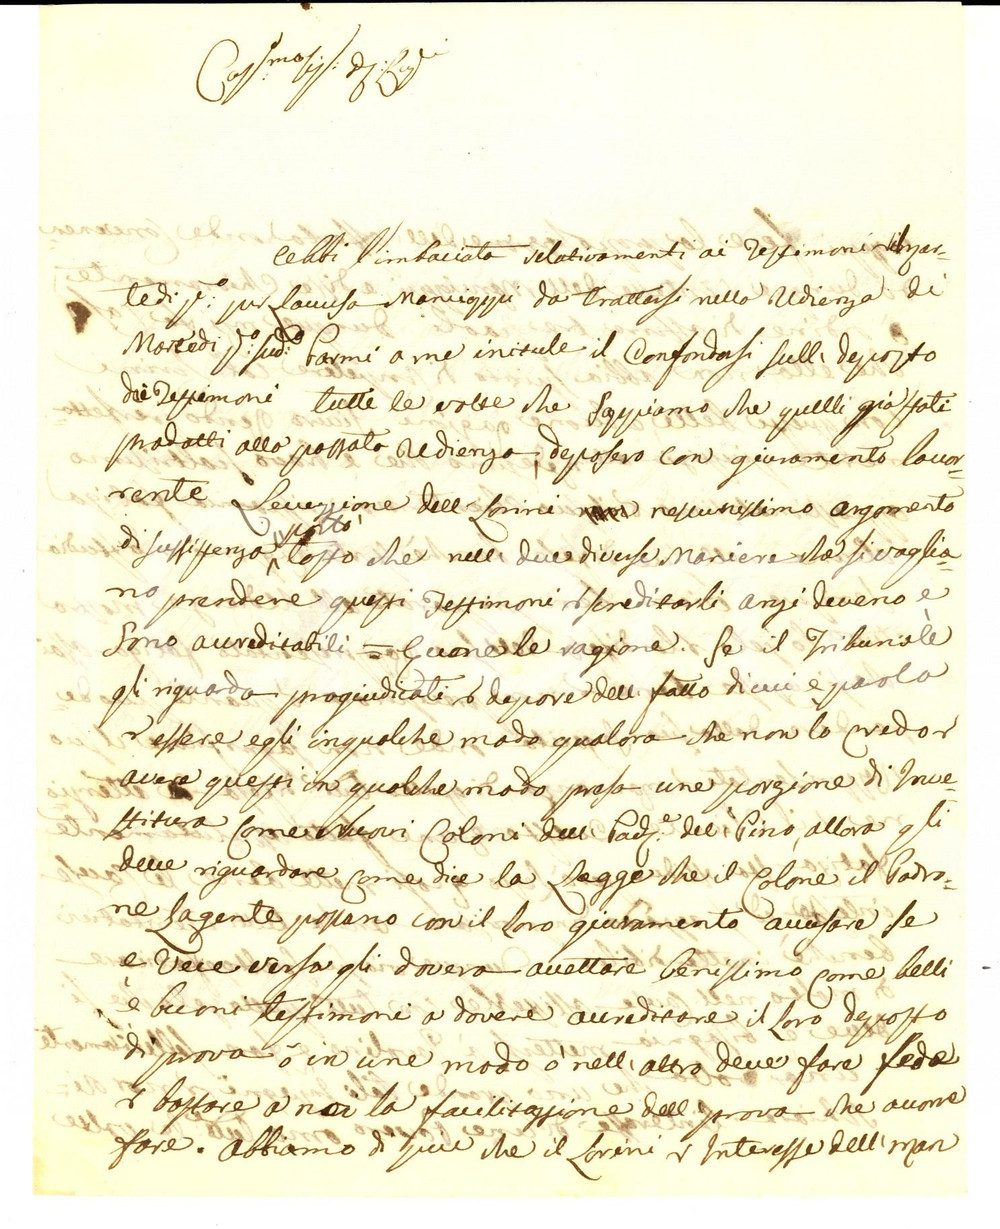 Ebbi l'imbaciata relativamenti ai Testimoni il Mar-
tedi p.º: per la causa Manciappi da trattarsi nella Udienza di
Martedi p.º: sud.º Parmi a me inutule il Confondersi sull: deposto
dei Testimoni tutte le volte che Sappiamo che quelli già stati
prodatti alla passata Udienza, deposero con giuramento la cor-
rente Leccezione dell Lorini nessunissimo argomento
di sussistenza porta' tosto che nell: due diverse Maniere che si voglia=
no prendere questi Testimoni discreditarli anzi deveno e
Sono accreditabili = Eccone le ragione. Se il Tribunale
gli riguarda progiudicati a depore dell: fatto di cui è parola
essere egli in qualche modo qualora che non lo credo
avere questi in qualche modo presa une porzione di Inve=
stitura Come nuovi Coloni dell: Pad.e del: Pino, allora gli
deve riguardare come dice la Legge che il Colone il Padro=
ne Lagente possano con il loro giuramento accusare se
e Vece versa gli dovera accettare benissimo come belli
è buoni testimoni a dovere accreditare il Loro deposto
di prova ò in une modo o' nell: altro deve fare fede
bastare a noi la facilitazzione dell: prova che avone
fare. Abbiamo di piu che il Lorini Interesse dell: Man